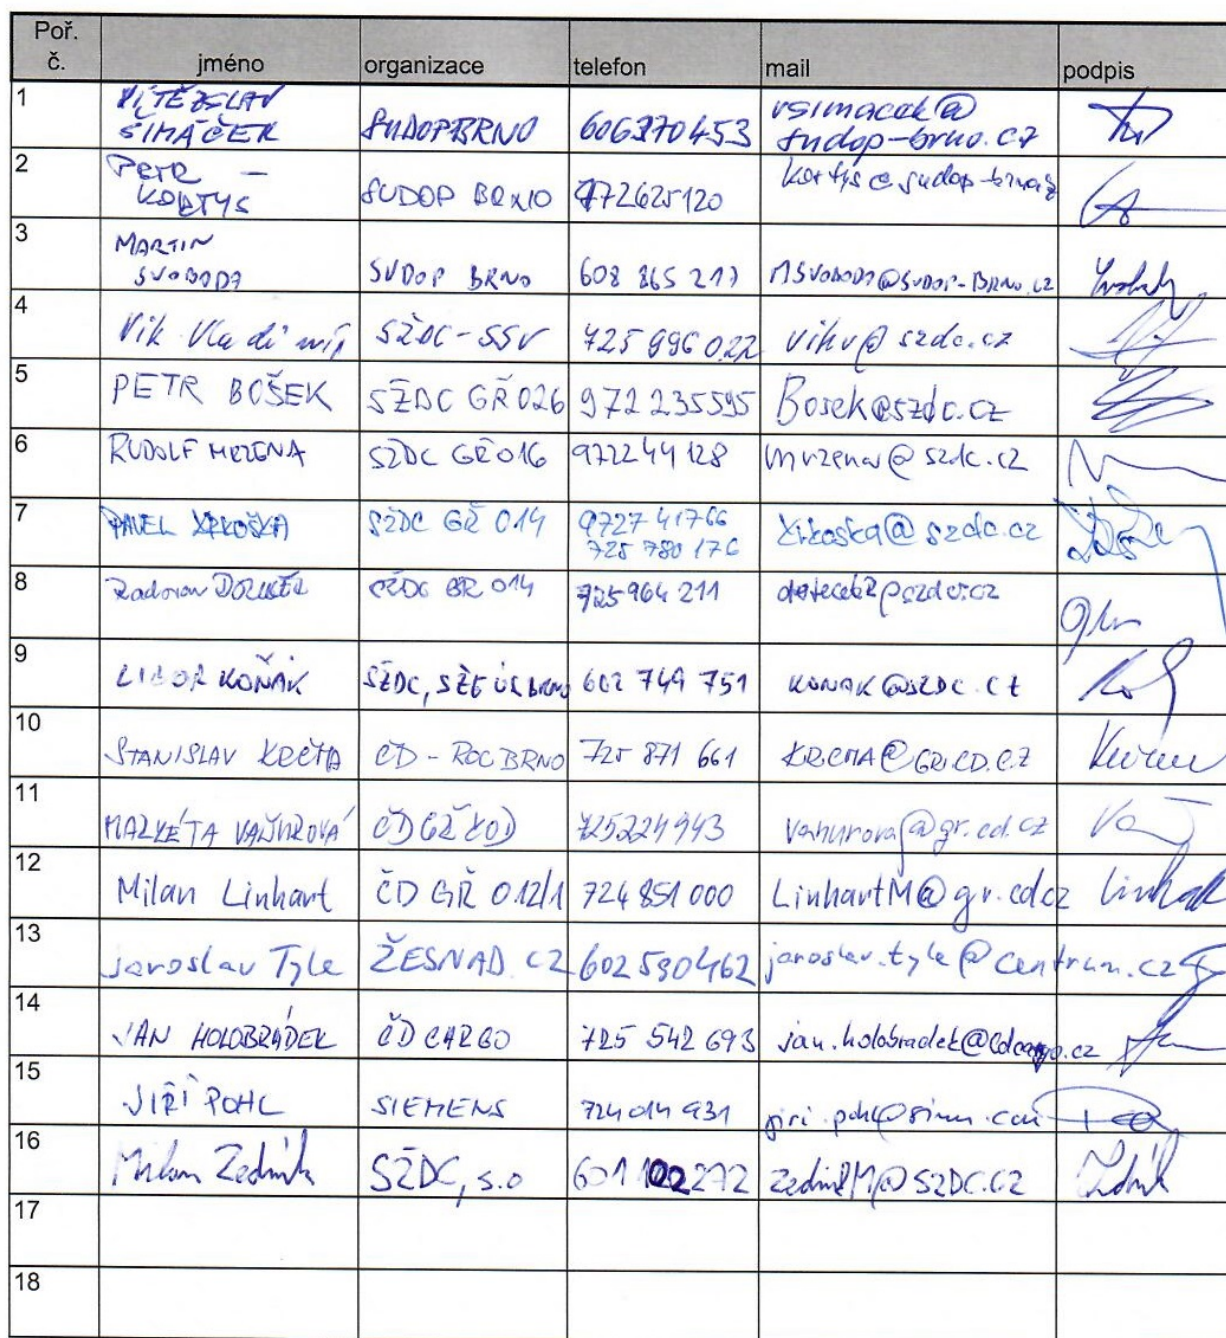 Poř. č. jméno organizace telefon mail podpis
1 VÍTĚZSLAV ŠIMÁČEK SUDOP BRNO 606370453 vsimacek@sudop-brno.cz
2 PETR KORTYS SUDOP BRNO 972625120 kortys@sudop-brno.cz
3 MARTIN SVOBODA SUDOP BRNO 608 865 217 MSVOBODA@SUDOP-BRNO.CZ
4 Vik Vladimír SŽDC-SSV 725 996 022 vikv@szdc.cz
5 PETR BOŠEK SŽDC GŘ 026 972 235595 Bosek@szdc.cz
6 RUDOLF MRZENA SŽDC GŘ 016 972244128 mrzena@szdc.cz
7 PAVEL SŽDC GŘ 014 972741766 725 780 176 @szdc.cz
8 SŽDC GŘ 014 725964211
9 LIBOR KOŇÁK SŽDC, 602 749 751 KONAK@SZDC.CZ
10 STANISLAV KRČMA ČD - ROC BRNO 725 871 661 KRCMA@GR.CD.CZ
11 MARKÉTA VAŇHUROVÁ ČD GŘ 725224943 @gr.cd.cz
12 Milan Linhart ČD GŘ 012/1 724 851 000 LinhartM@gr.cd.cz Linhart
13 Jaroslav Tyle ŽESNAD.CZ 602590462 jaroslav.tyle@centrum.cz
14 JAN HOLOBRÁDEK ČD CARGO 725 542 693 jan.holobradek@cdcargo.cz
15 JIŘÍ POHL SIEMENS 724 014 931
16 Milan Zedník SŽDC, s.o 601 102 272 ZednikM@SZDC.CZ Zedník
17
18